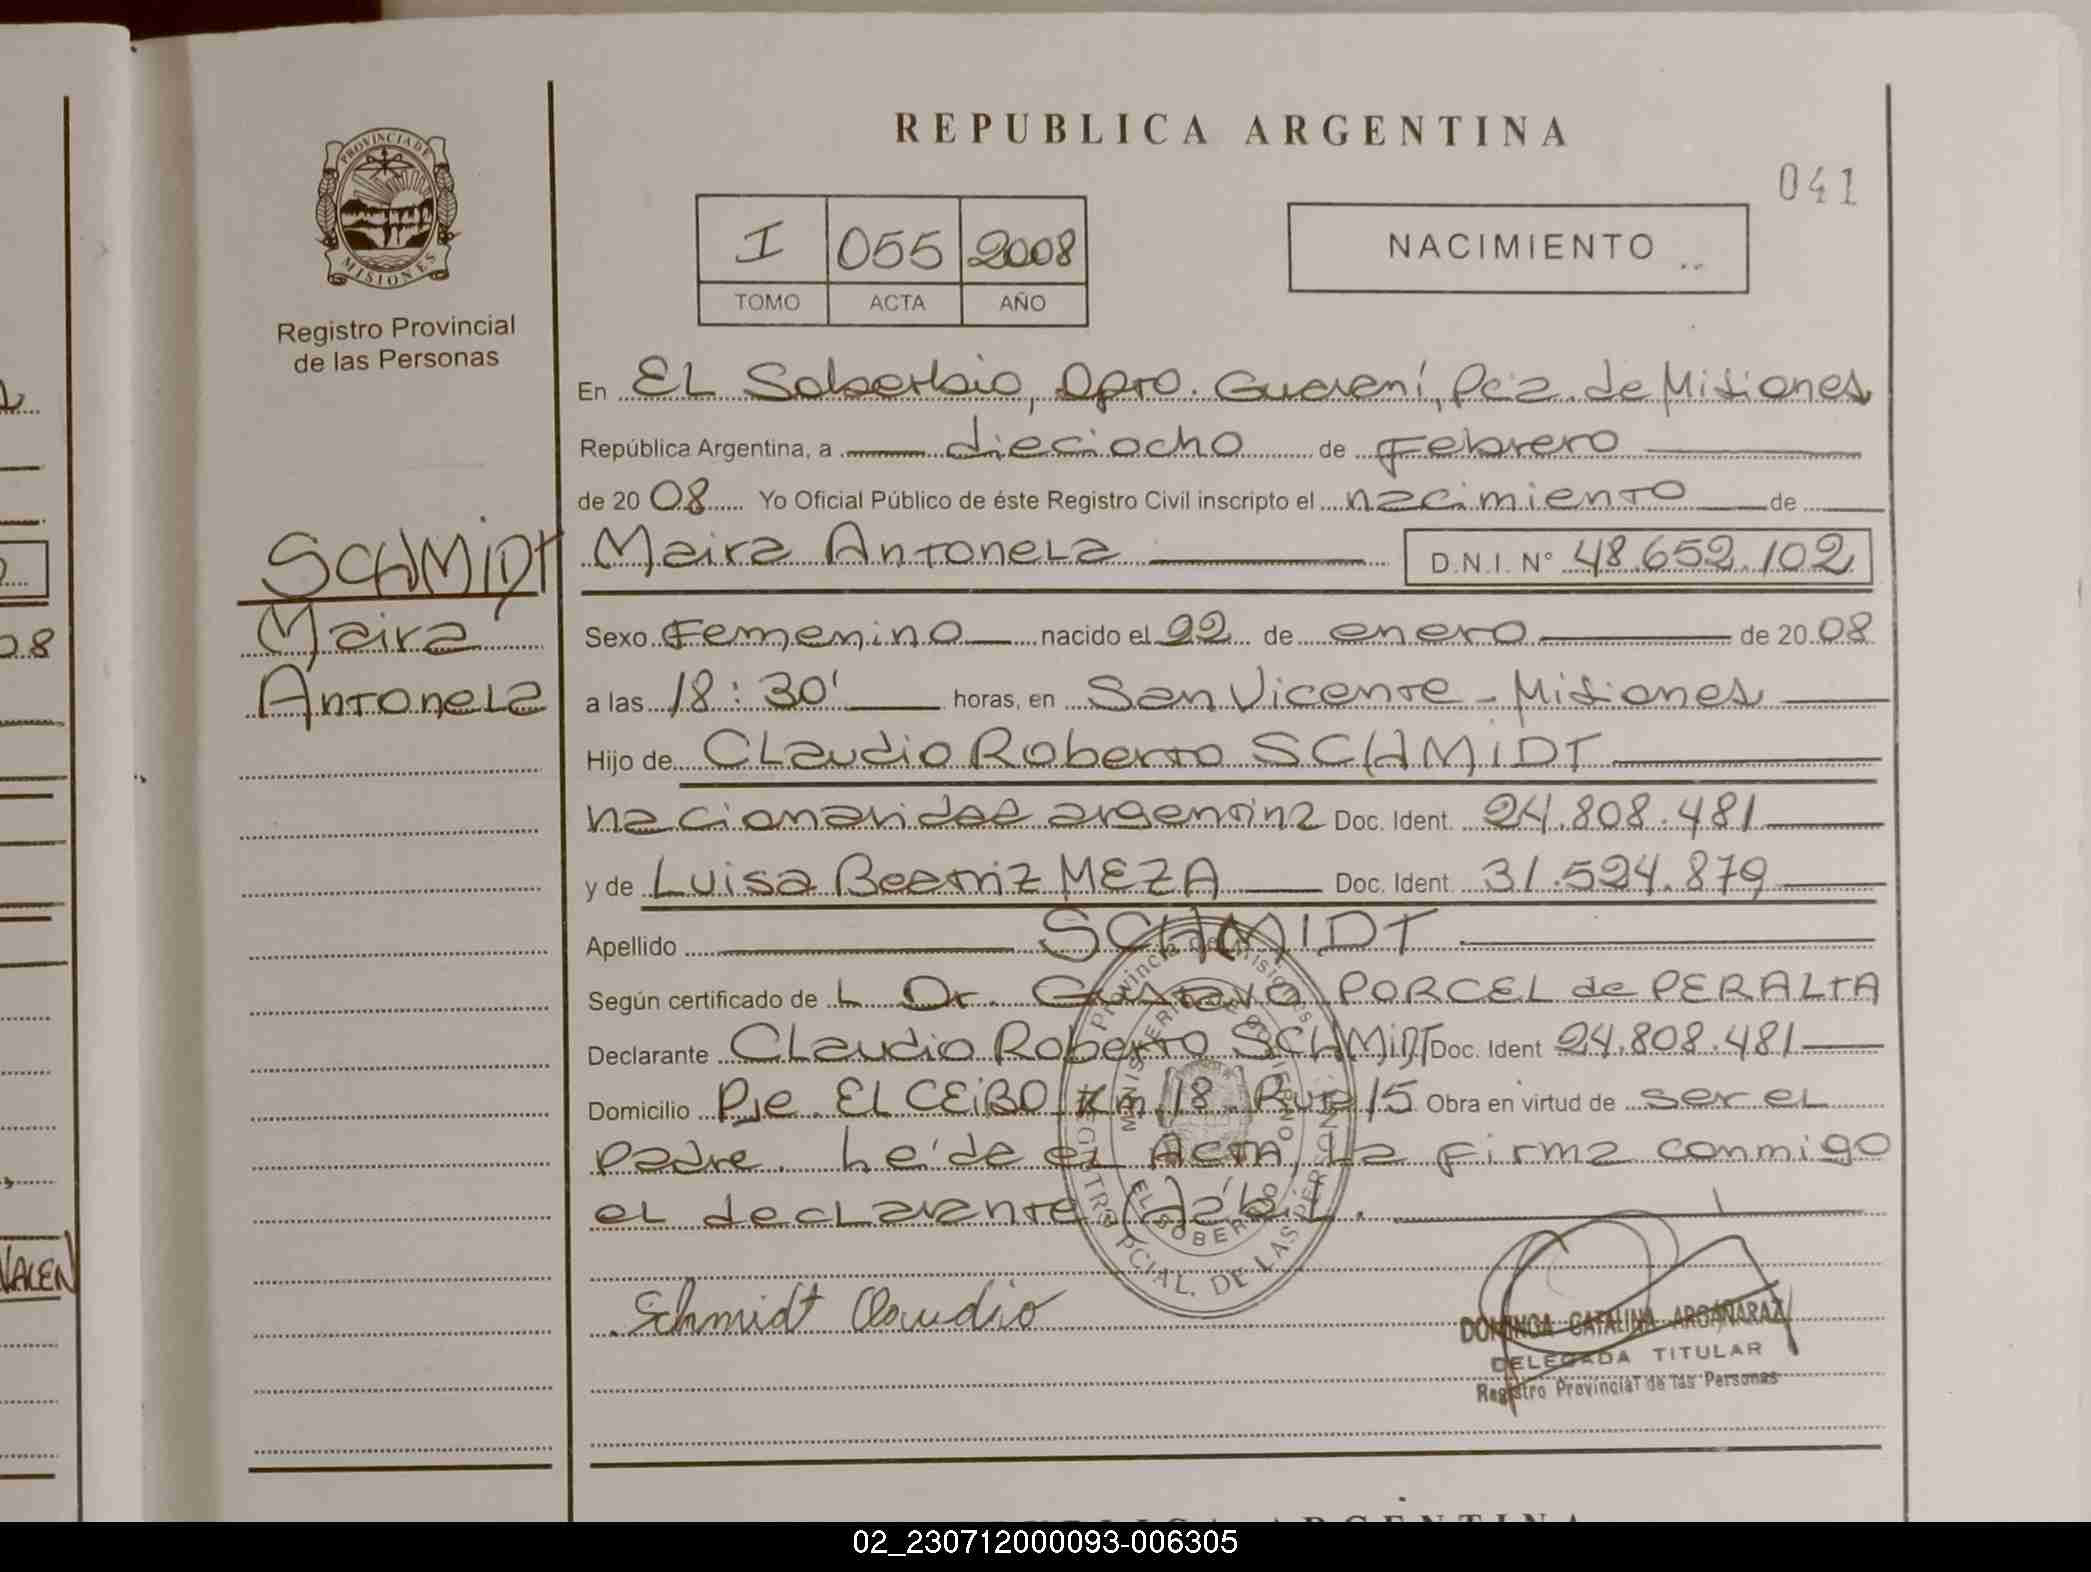 REPUBLICA ARGENTINA
041
PROVINCIA DE
MISIONES
Registro Provincial
de las Personas
I 055 2008
TOMO ACTA AÑO
NACIMIENTO
En EL Soberbio, Dpto. Guaraní, Pcia. de Misiones
República Argentina, a dieciocho de Febrero
de 2008 Yo Oficial Público de éste Registro Civil inscripto el nacimiento de
SCHMIDT
Maira
Antonela
Maira Antonela D.N.I. Nº 48.652.102
Sexo Femenino nacido el 22 de enero de 2008
a las 18:30' horas, en San Vicente - Misiones
Hijo de Claudio Roberto SCHMIDT
nacionalidad argentina Doc. Ident. 24.808.481
y de Luisa Beatriz MEZA Doc. Ident. 31.524.879
Apellido SCHMIDT
Según certificado de L Dr. Gustavo PORCEL de PERALTA
Declarante Claudio Roberto SCHMIDT Doc. Ident 24.808.481
Domicilio Pje. EL CEIBO Km 18 Ruta 15 Obra en virtud de ser el
padre. Leída el Acta, la firma conmigo
el declarante (hábil).
Provincia de Misiones
MINISTERIO DE GOBIERNO
EL SOBERBIO
REGISTRO PCIAL. DE LAS PERSONAS
Schmidt Claudio
DOMINGA CATALINA ARGAÑARAZ
DELEGADA TITULAR
Registro Provincial de las Personas
08
VALEN
REPUBLICA ARGENTINA
02_230712000093-006305